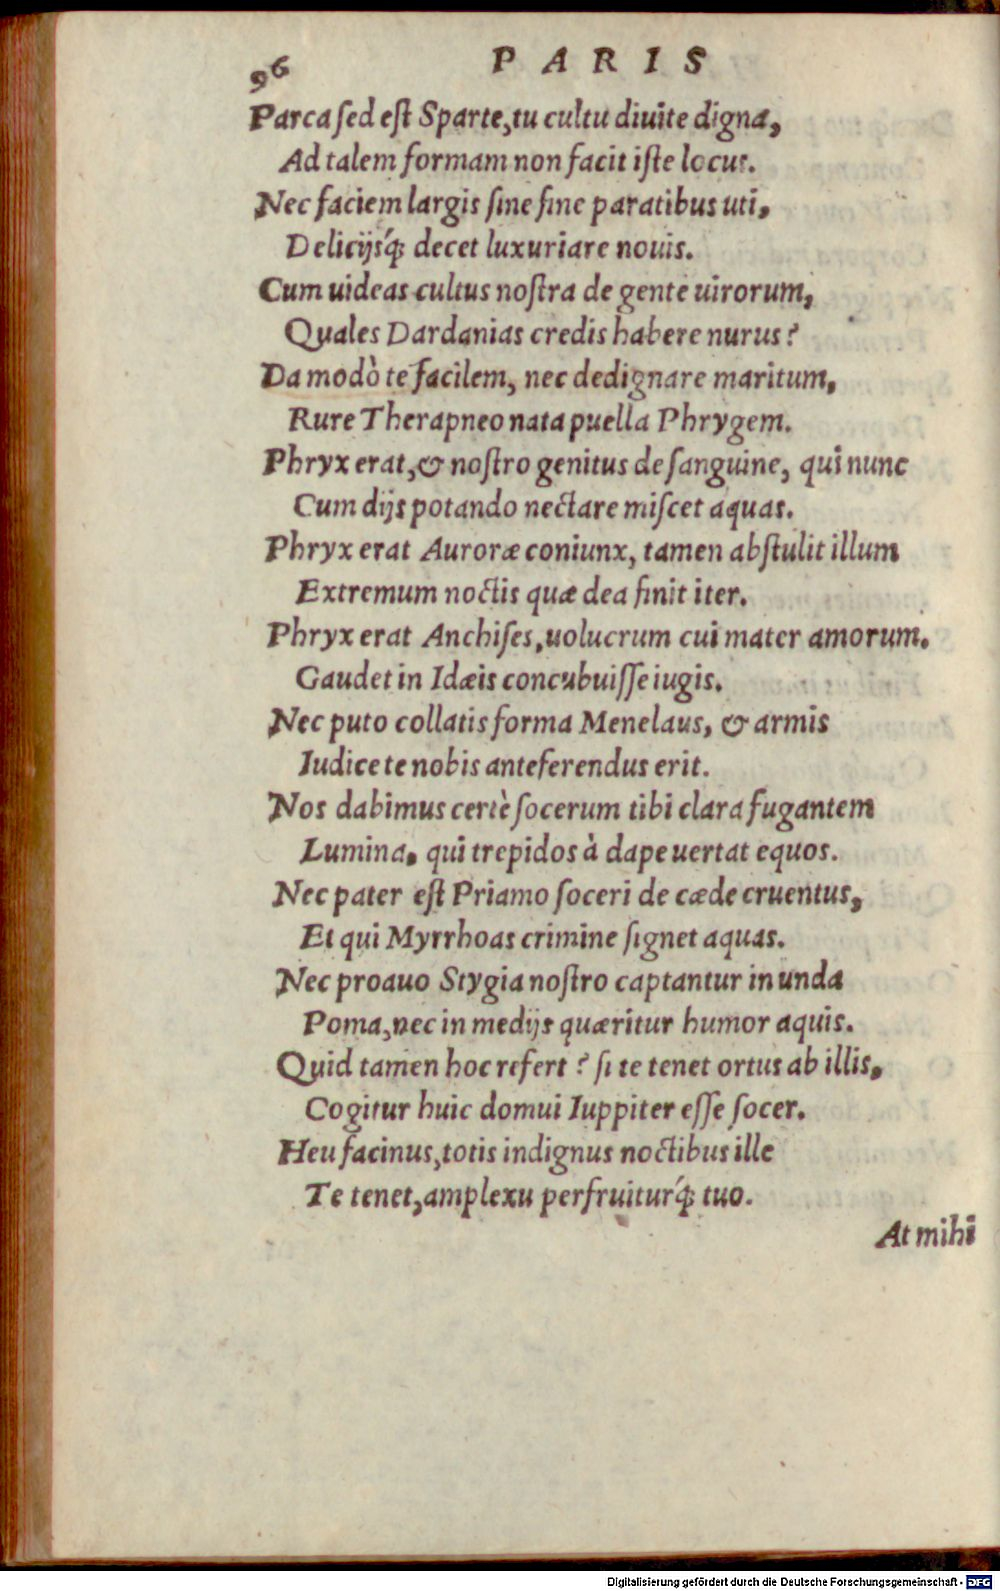 96 PARIS
Parca sed est Sparte, tu cultu diuite digna,
Ad talem formam non facit iste locus.
Nec faciem largis sine fine paratibus uti,
Delicijsq́; decet luxuriare nouis.
Cum uideas cultus nostra de gente uirorum,
Quales Dardanias credis habere nurus?
Da modò te facilem, nec dedignare maritum,
Rure Therapneo nata puella Phrygem.
Phryx erat, & nostro genitus de sanguine, qui nunc
Cum dijs potando nectare miscet aquas.
Phryx erat Auroræ coniunx, tamen abstulit illum
Extremum noctis quæ dea finit iter.
Phryx erat Anchises, uolucrum cui mater amorum.
Gaudet in Idæis concubuisse iugis.
Nec puto collatis forma Menelaus, & armis
Iudice te nobis anteferendus erit.
Nos dabimus certè socerum tibi clara fugantem
Lumina, qui trepidos à dape uertat equos.
Nec pater est Priamo soceri de cæde cruentus,
Et qui Myrrhoas crimine signet aquas.
Nec proauo Stygia nostro captantur in unda
Poma, nec in medijs quæritur humor aquis.
Quid tamen hoc refert? si te tenet ortus ab illis,
Cogitur huic domui Iuppiter esse socer.
Heu facinus, totis indignus noctibus ille
Te tenet, amplexu perfruiturq́; tuo.
At mihi
Digitalisierung gefördert durch die Deutsche Forschungsgemeinschaft - DFG